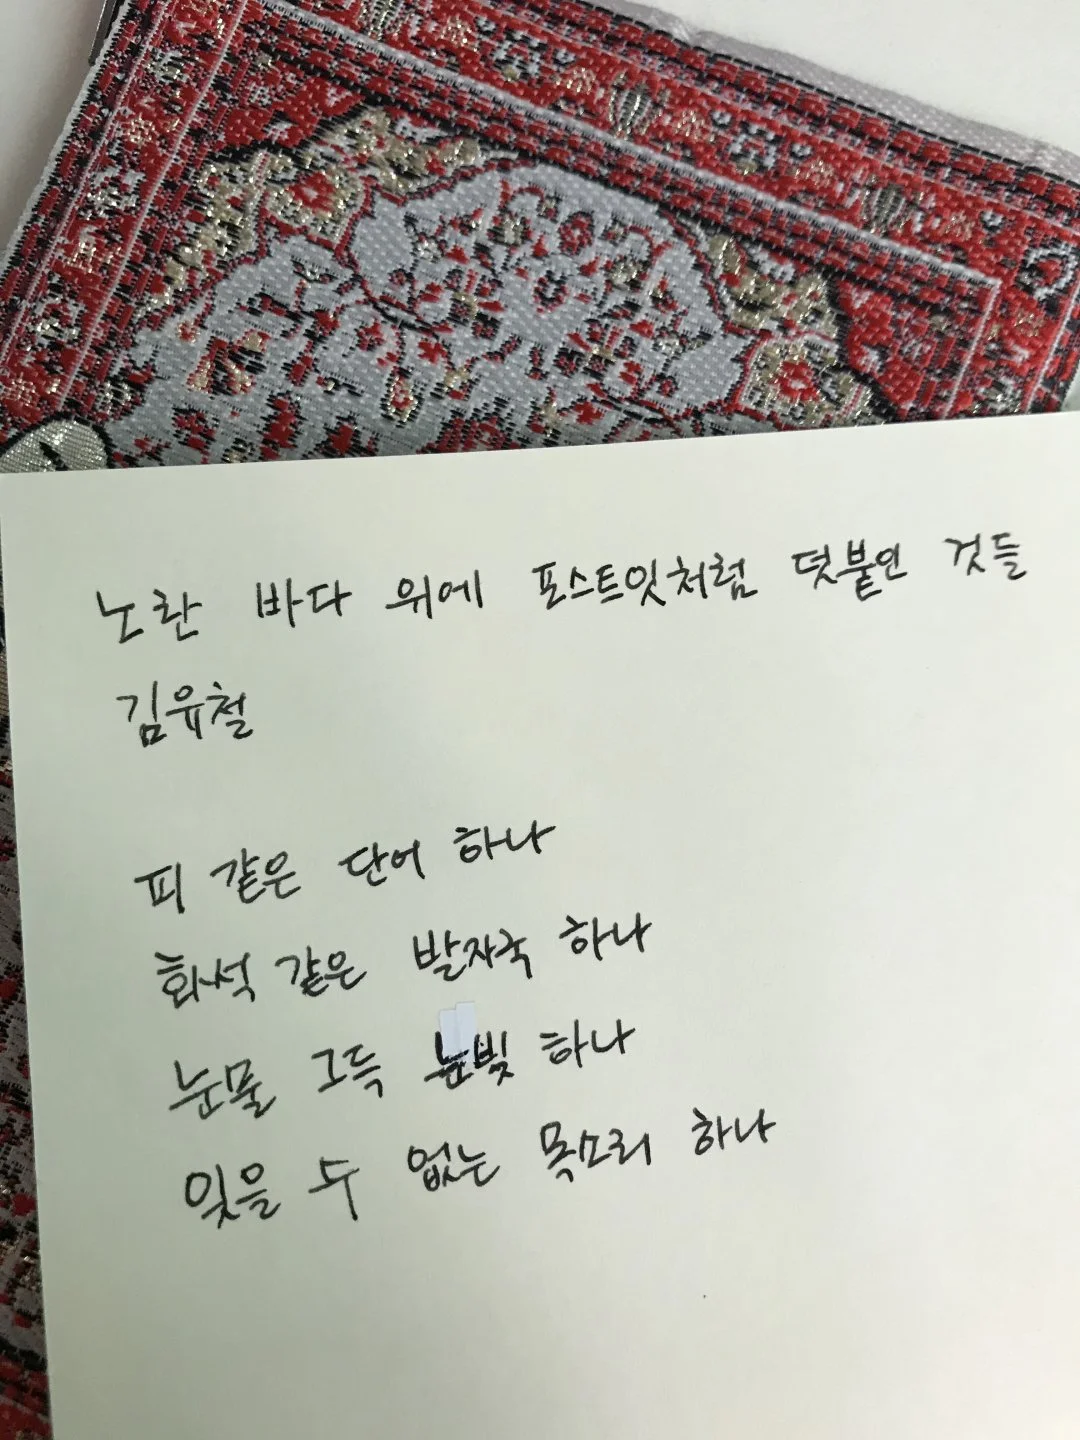 노란 바다 위에 포스트잇처럼 덧붙인 것들
김유철
피 같은 단어 하나
화석 같은 발자국 하나
눈물 그득 눈빛 하나
잊을 수 없는 목소리 하나